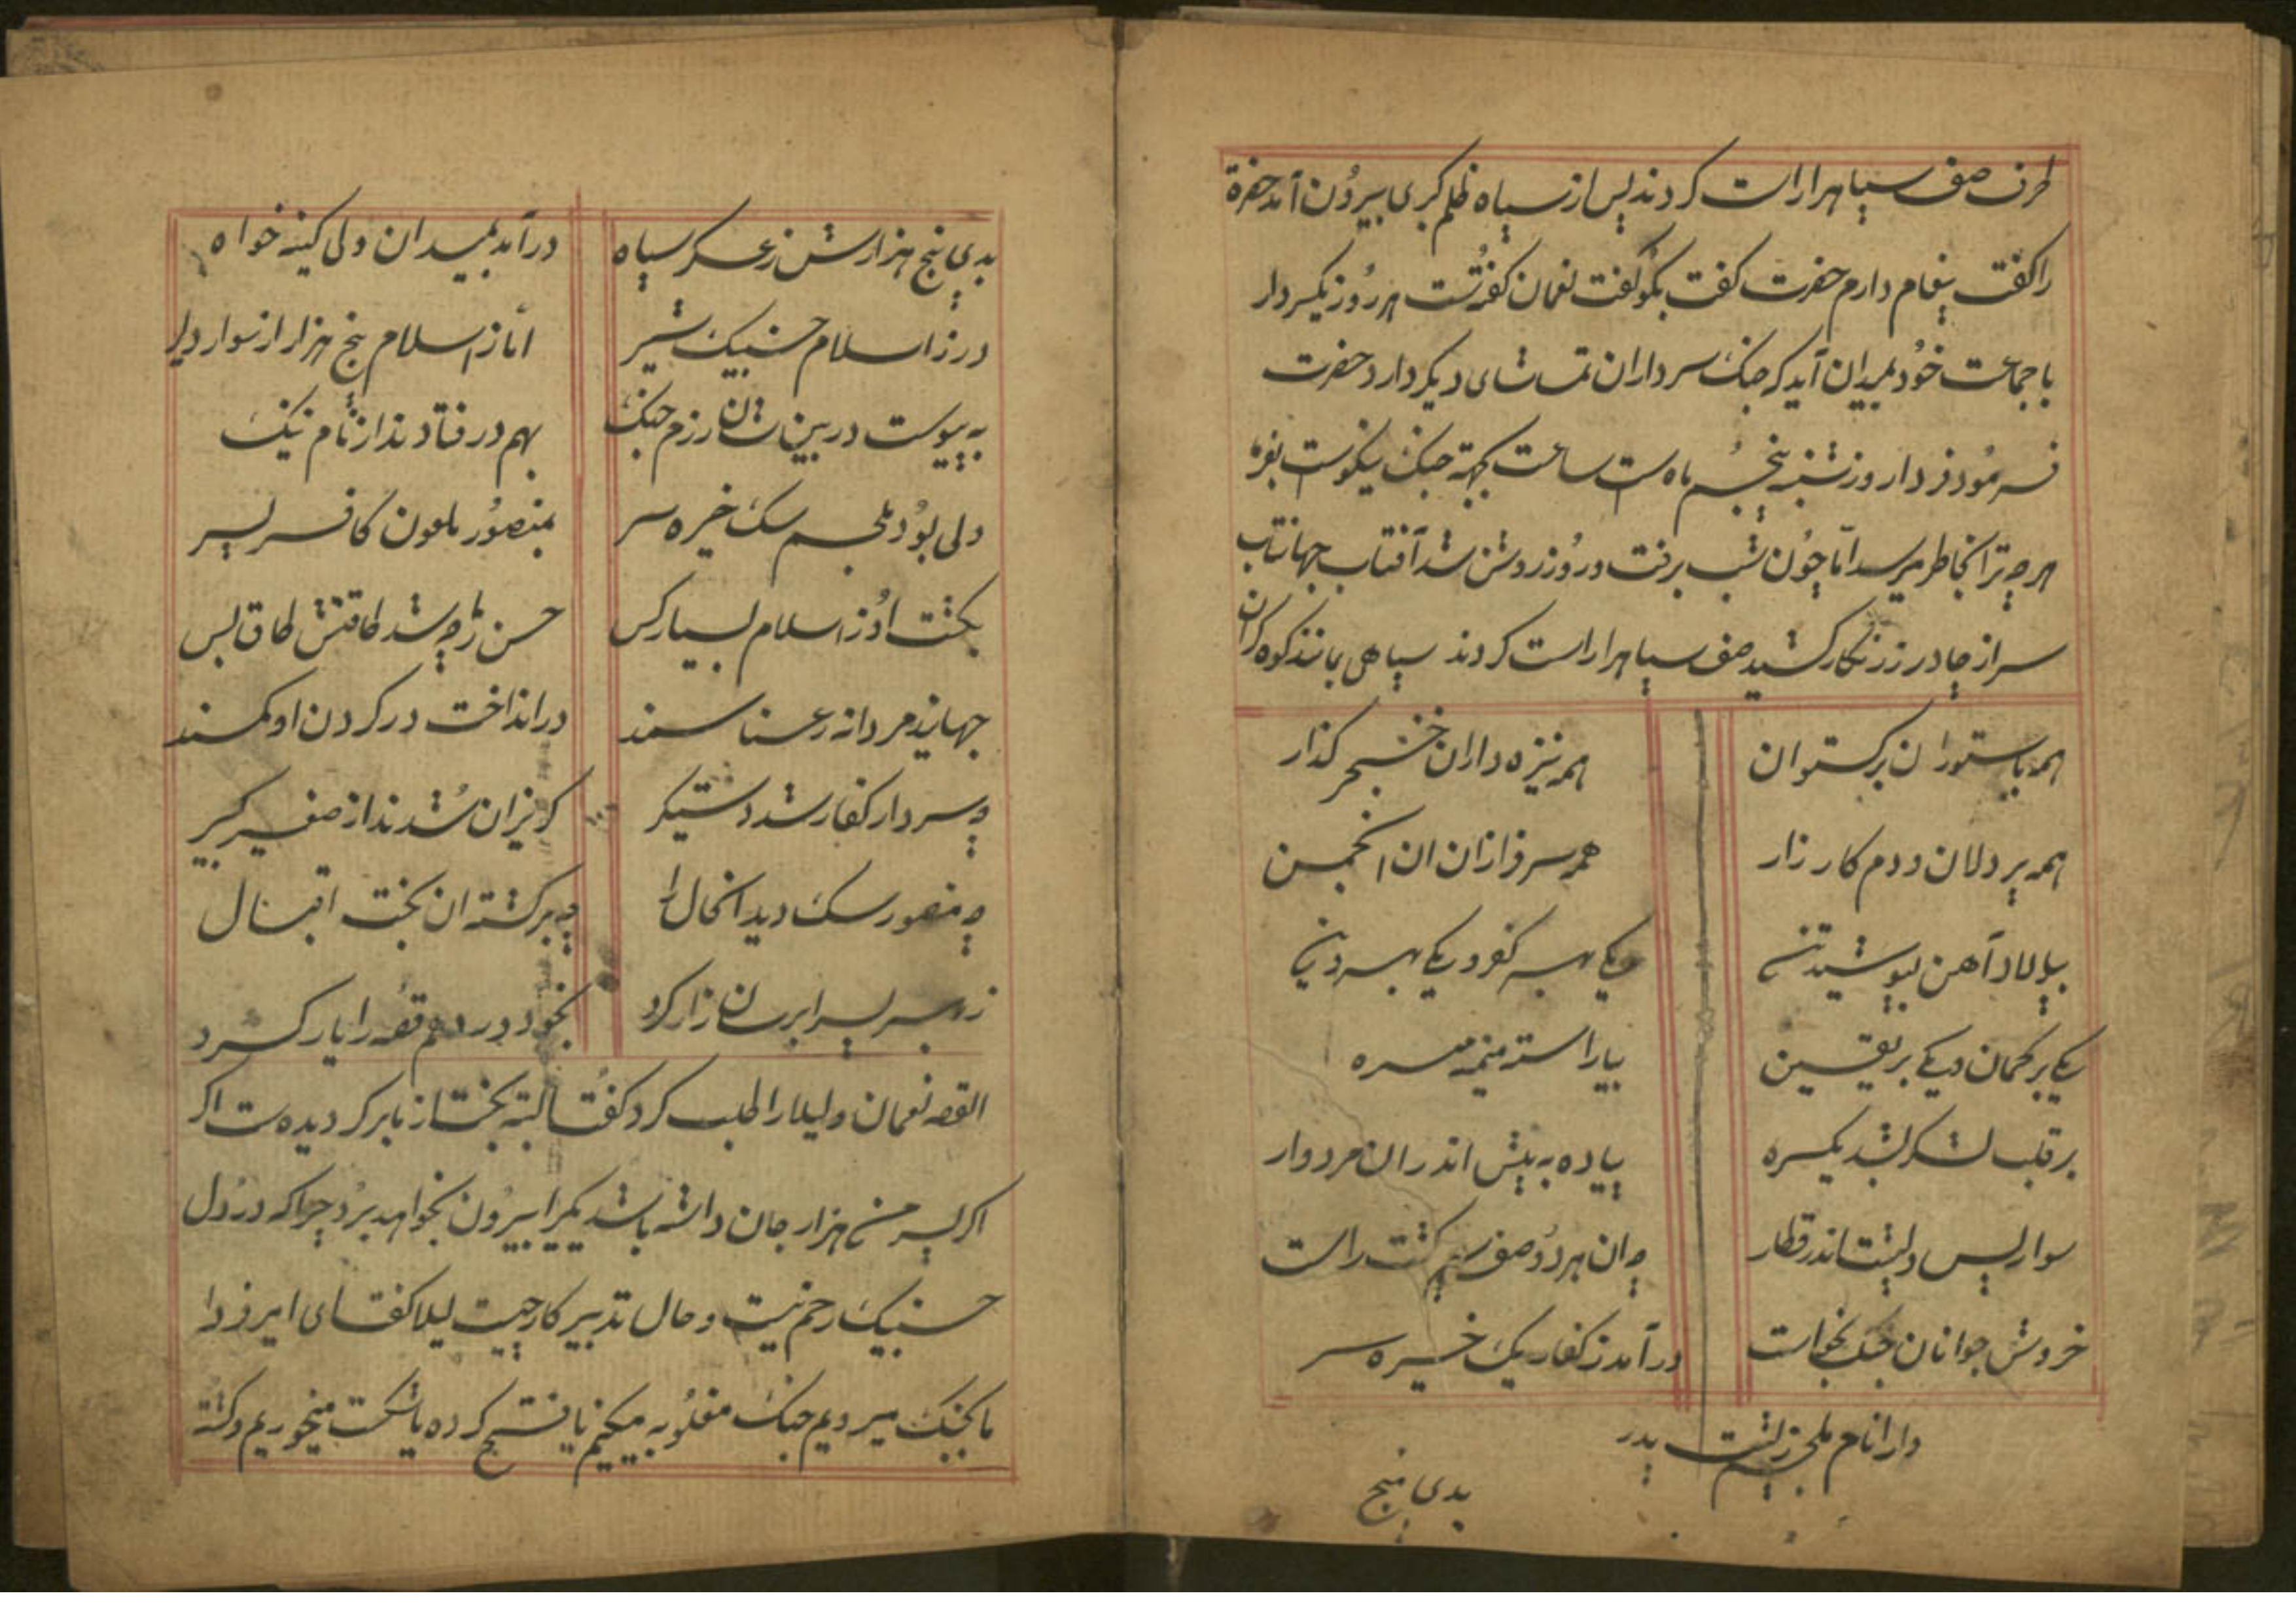 طرف صف سپاهرا راست کردند پس از سپاه ظلم کبری بیرون آمد حضرة
را کفت پیغام دارم حضرت کفت بکو کفت نعمان کفتست هر روز یکسردار
با جماعت خود بمیدان آید که جنک سرداران تماشای دیکر دارد حضرت
فرمود فردا روز شنبه پنجم ماه است ساعت بجهة جنک نیکوست
هرچه ترا بخاطر میرسد امّا چون شب برفت و روز روشن شد آفتاب جهانتاب
سر از چادر زرنکار کشید صف سپاهرا راست کردند سپاهی مانند کوه کران
همه با ستوران برکستوان همه نیزه داران خنجر کذار
همه پر دلان و دم کارزار همه سرفرازان ان انجمن
بپولاد آهن بپوشید تن یکی بهر کفر و یکی بهر دین
یکی بر کمان و یکی بر یقین بیاراسته میمنه میسره
بر قلب لشکر بشد یکسره پیاده به پیش اندران مردوار
سوار پس و پشت اندر قطار چه ان هر دو صف سپه کشت راست
خروش جوانان جنک بخواست در آمد ز کفار یک خیره سر
دارا نام ملجم ز پشت پدر
بدی پنج
بدی پنج هزارش ز عسکر سپاه در آمد بمیدان ولی کینه خواه
در ز اسلام حسنبیک شیر امّا ز اسلام پنج هزار از سوار دلیر
به پیوست در بین شان رزم جنک بهم در فتادند از نام ننک
ولی بود ملجم سک خیره سر بمنصور ملعون کافر پسر
بکشت او ز اسلام بسیار کس حسن را چه شد طاقتش طاق بس
جهانید مردانه رعنا سمند در انداخت در کردن او کمند
چه سردار کفار شد دستیکر کریزان شدند از صغیر کبیر
چه منصور سک دید انحال را چه برکشته ان بخت اقبال
ز بهر پسر ابرسان زار کرد بخود در دهم قصه را یار کرد
القصه نعمان و لیلا را طلب کرد کفت البته بخت از ما برکردیده است اکر
اکر پسر من هزار جان داشته باشد یکیرا بیرون نخواهد برد چرا که در دل
حسنبیک رحم نیست و حال تدبیر کار چیست لیلا کفت ای امیر فردا
ما بجنک میرویم جنک مغلوبه میکنیم یا فتح کرده یا شکست میخوریم و کشته